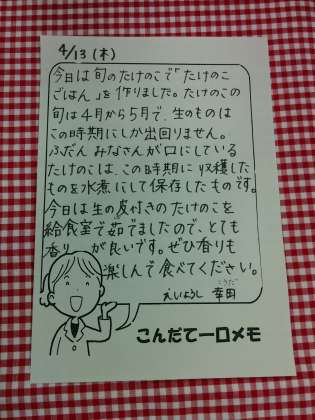 4/13 (木)
今日は旬のたけのこで「たけのこ
ごはん」を作りました。たけのこの
旬は4月から5月で、生のものは
この時期にしか出回りません。
ふだん みなさんが口にしている
たけのこは、この時期に収穫した
ものを水煮にして保存したものです。
今日は生の皮付きのたけのこを
給食室で茹でましたので、とても
香りが良いです。ぜひ香りも
楽しんで食べてください。
えいようし 幸田
こうだ
こんだて一口メモ